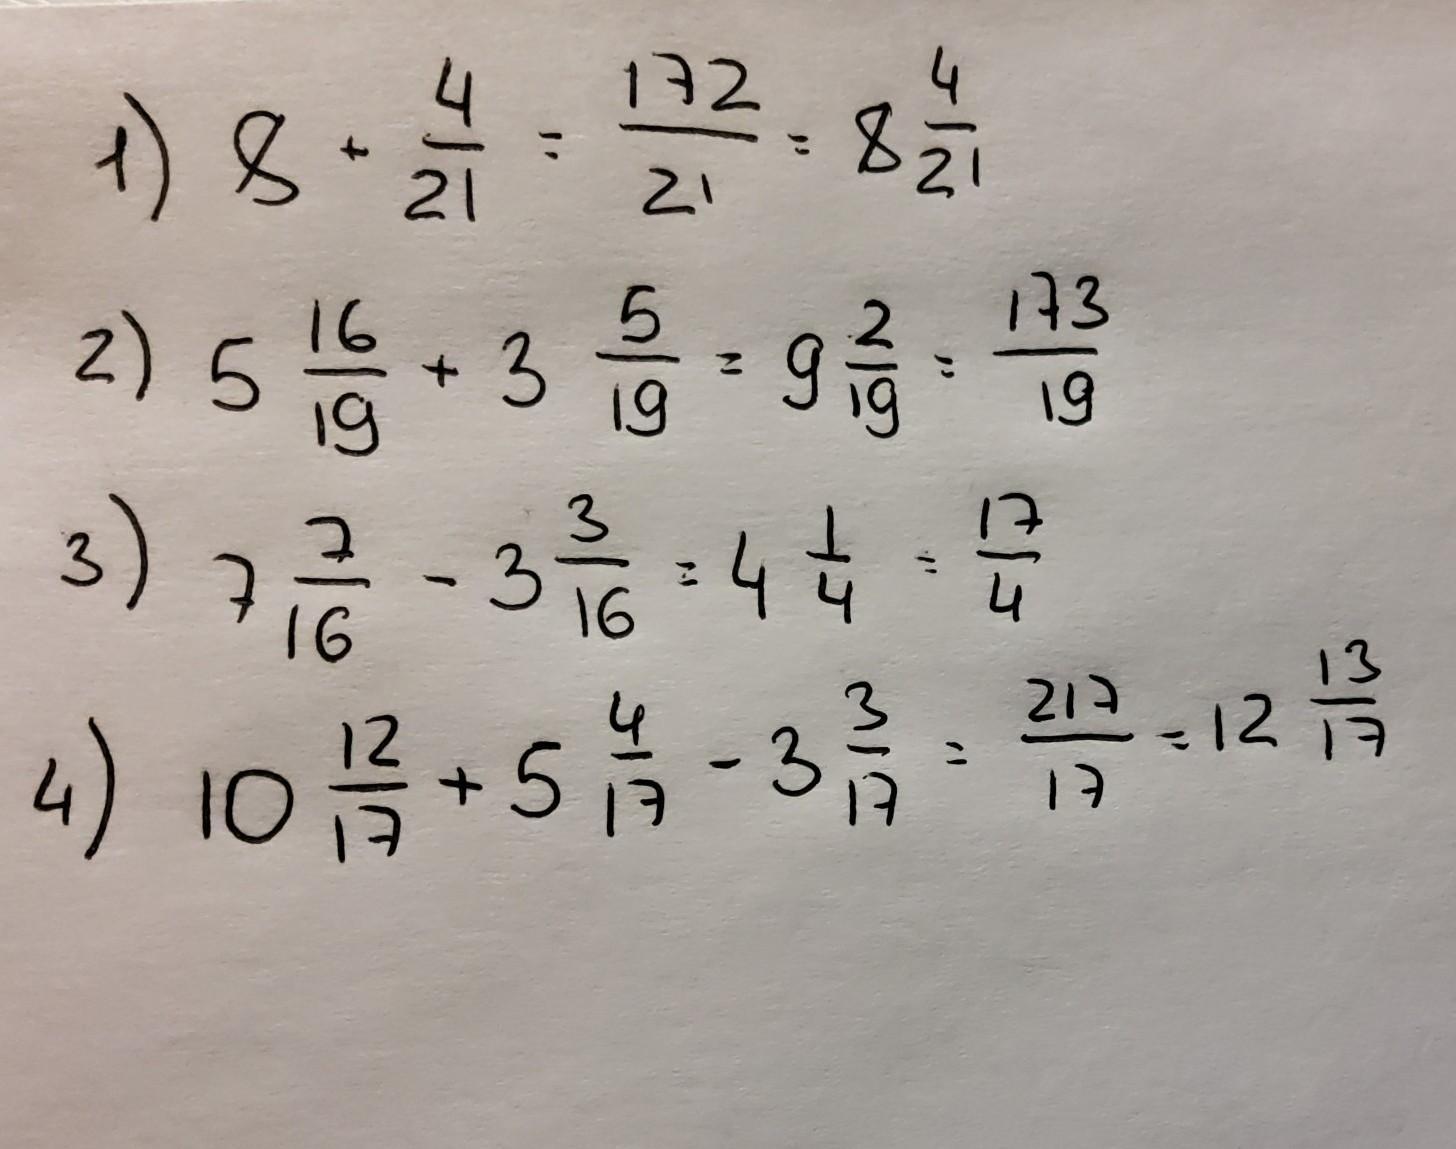 1) 8 + 4/21 = 172/21 = 8 4/21
2) 5 16/19 + 3 5/19 = 9 2/19 = 173/19
3) 7 7/16 - 3 3/16 = 4 1/4 = 17/4
4) 10 12/17 + 5 4/17 - 3 3/17 = 217/17 = 12 13/17